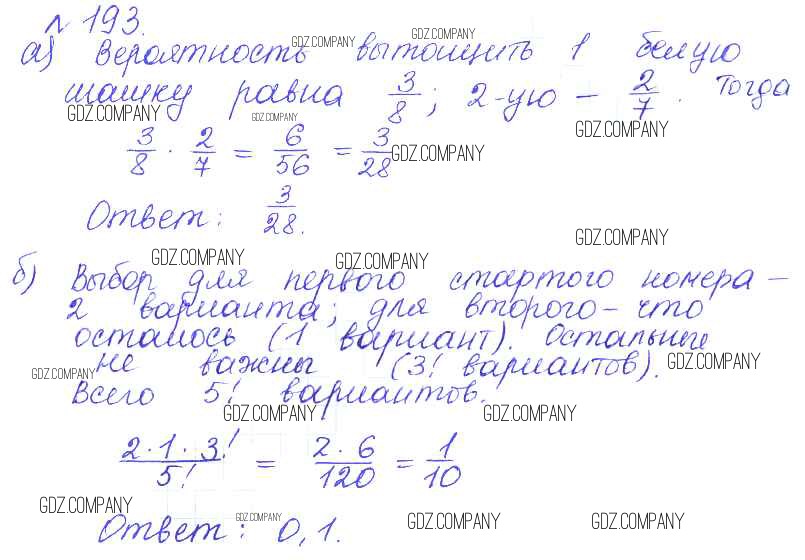 № 193.
GDZ.COMPANY GDZ.COMPANY
а) Вероятность вытощить 1 белую
шашку равна 3/8; 2-ую – 2/7. Тогда
GDZ.COMPANY GDZ.COMPANY GDZ.COMPANY
3/8 · 2/7 = 6/56 = 3/28
GDZ.COMPANY
Ответ: 3/28.
GDZ.COMPANY
GDZ.COMPANY GDZ.COMPANY
б) Выбор для первого стартого номера –
2 варианта; для второго – что
осталось (1 вариант). Остальные
не важны (3! вариантов).
GDZ.COMPANY GDZ.COMPANY
Всего 5! вариантов.
GDZ.COMPANY GDZ.COMPANY
2·1·3!/5! = 2·6/120 = 1/10
GDZ.COMPANY
Ответ: 0,1.
GDZ.COMPANY GDZ.COMPANY GDZ.COMPANY